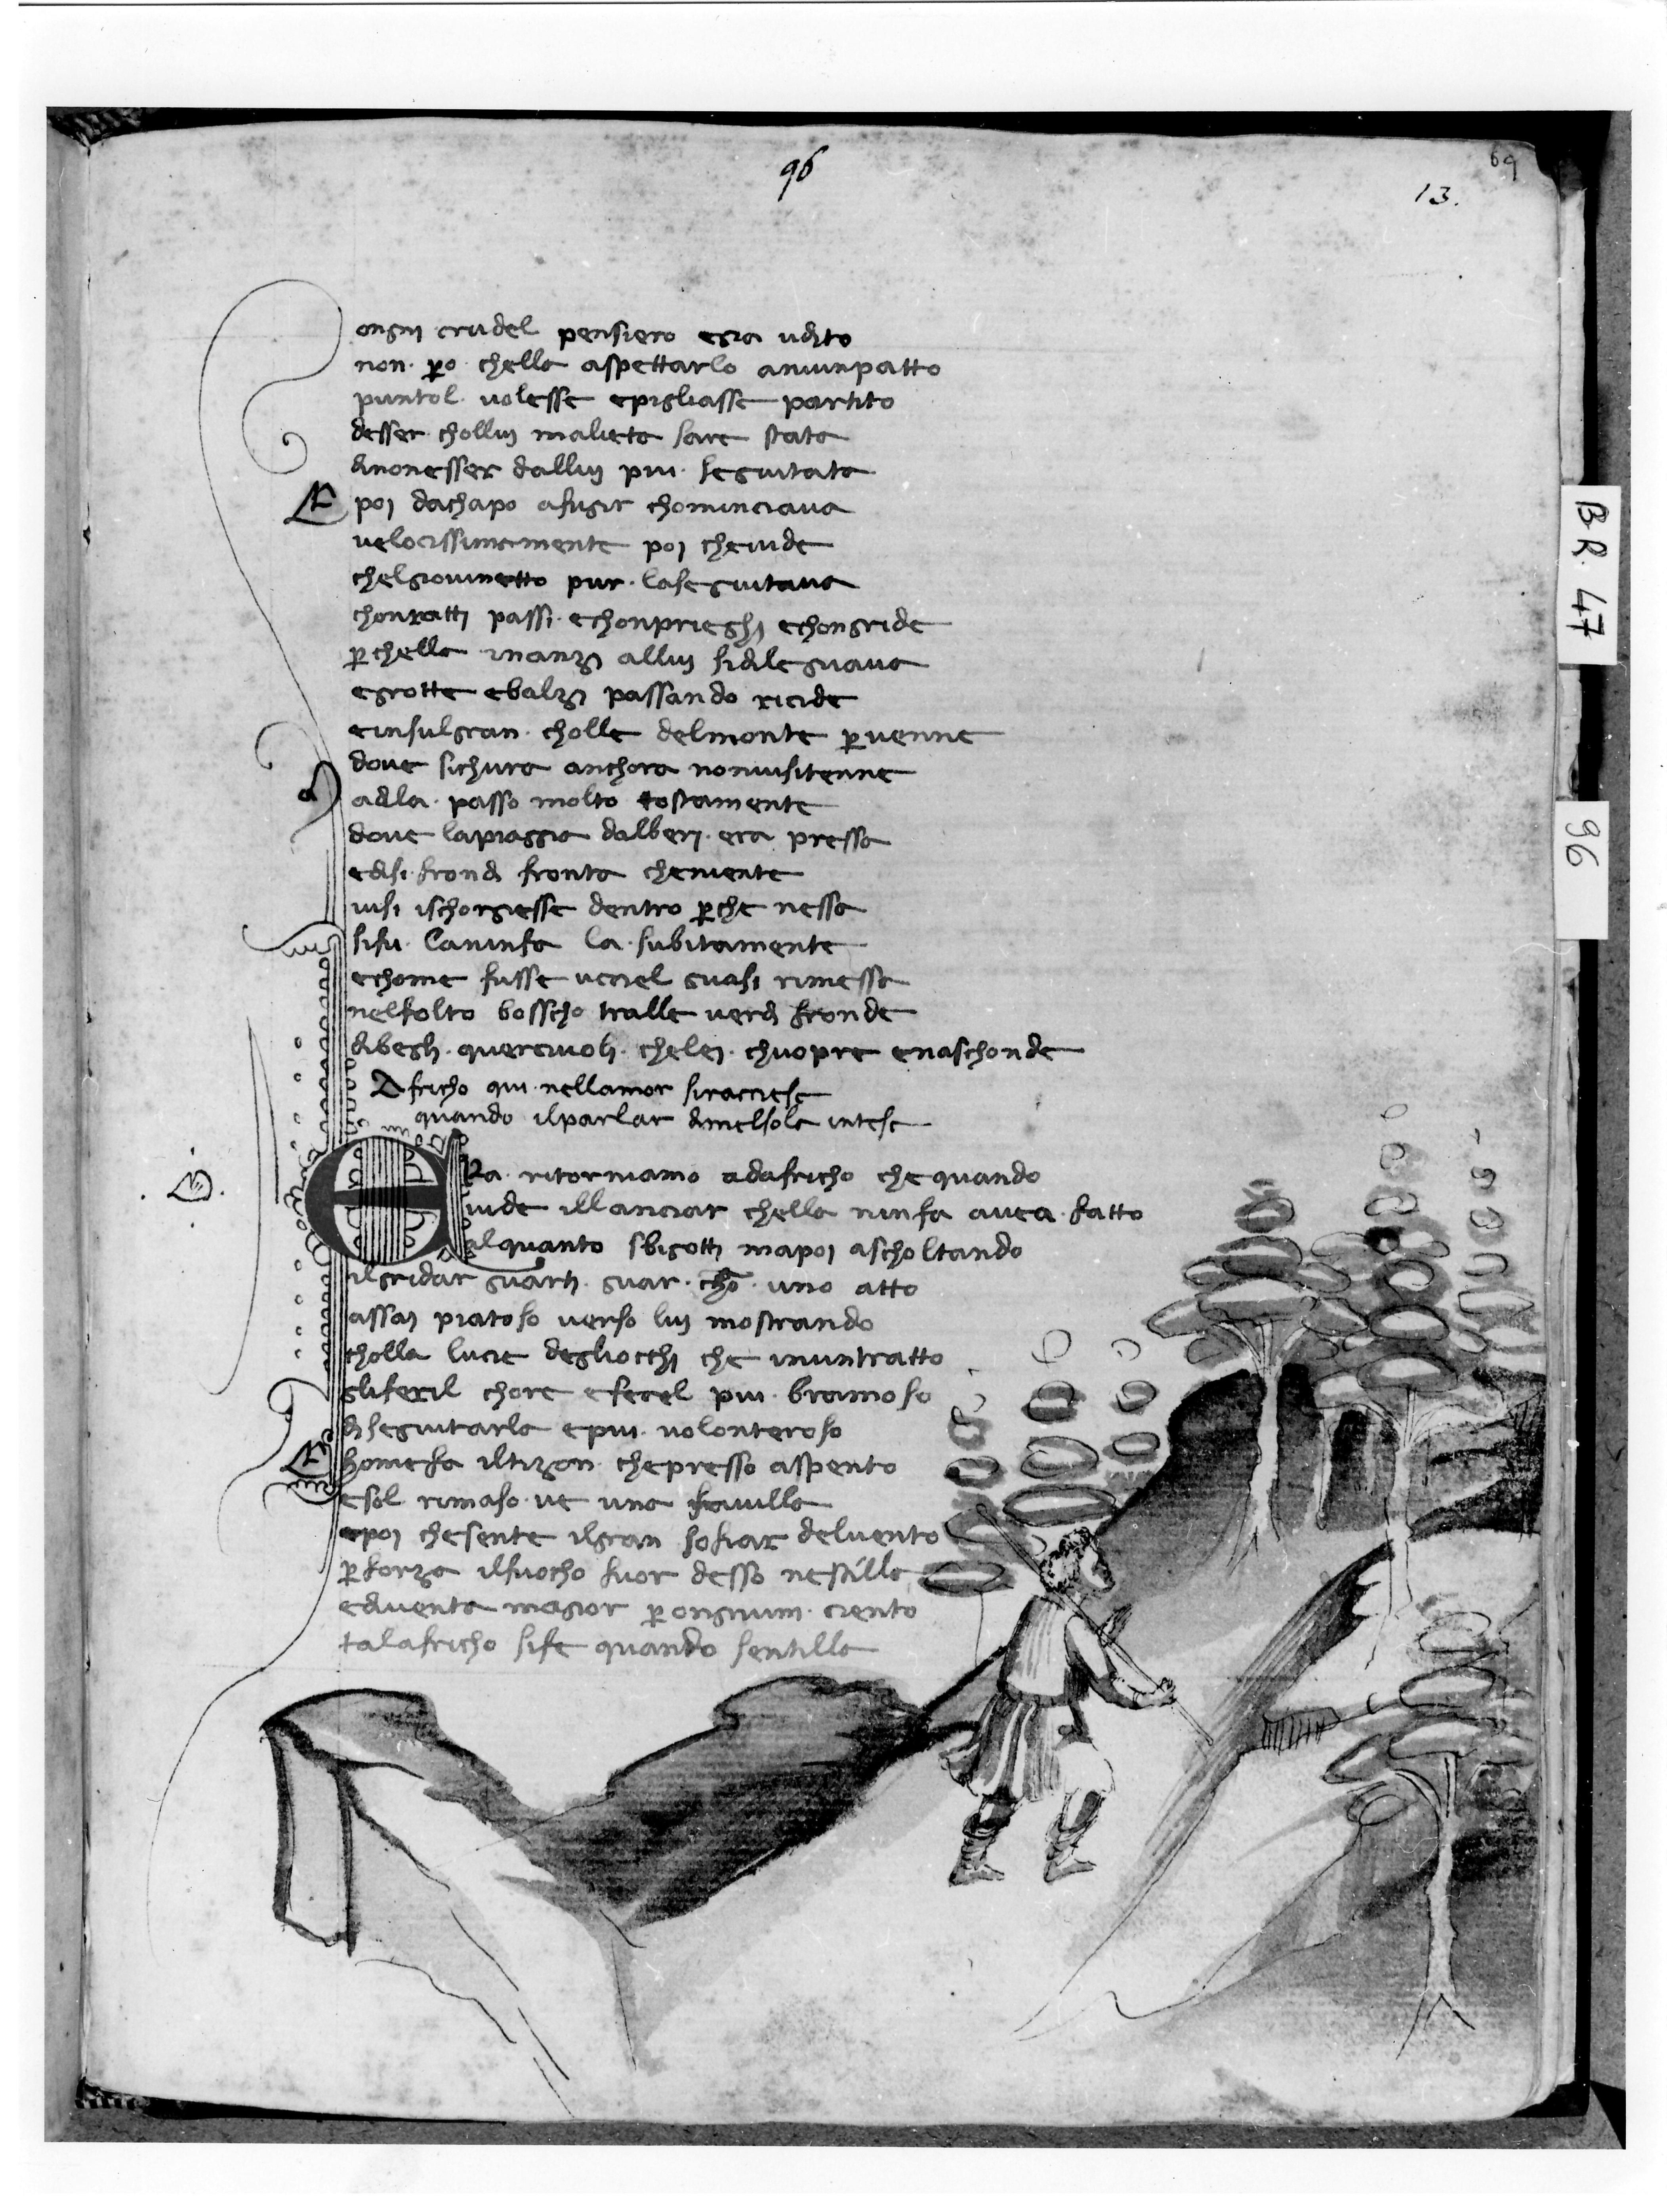 96
69
13.
ongni crudel pensiero e gia udito
non. pero chella aspettarlo aniunpatto
puntol. volesse epigliasse partito
desser chollui malieta sare stata
dinonesser dallui piu. seguitata
E poi dachapo afugir chominciava
velocissimamente poi chevide
chelgiovinetto pur. laseguitava
chonratti passi. echonprieghi echongride
perchella inanzi allui sidileguava
egrotte ebalzi passando ricide
einsulgran. cholle delmonte pervenne
dove sichura anchora nonvisitenne
adila. passo molto tostamente
dove lapiaggia dalberi. era pressa
edisi. frondi fronta cheniente
visi ischorgiesse dentro perche nessa
sifu. laninfa la. subitamente
echome fusse uciel quasi rimessa
nelfolto bosscho tralle verdi fronde
dibegli. quercivoli. chelei. chuopre enaschonde
Africho qui. nellamor siraciese
quando ilparlar dimelsola intese
Era. ritorniamo adafricho chequando
vide illanciar chella ninfa avea. fatto
alquanto sbigotti mapoi ascholtando
ilgridar guarti. guar. chon. uno atto
assai piatoso verso lui mostrando
cholla lucie degliocchi che inuntratto
gliferil chore efecel piu. bramoso
diseguitarla epiu. volonteroso
Chomefa iltizon. chepresso aspento
esol rimaso. ve una favilla
epoi chesente ilgran sofiar delvento
perforza ilfuocho fuor desso nestilla
ediventa magior perongnium. ciento
talafricho sife quando sentilla
BR. 47
96